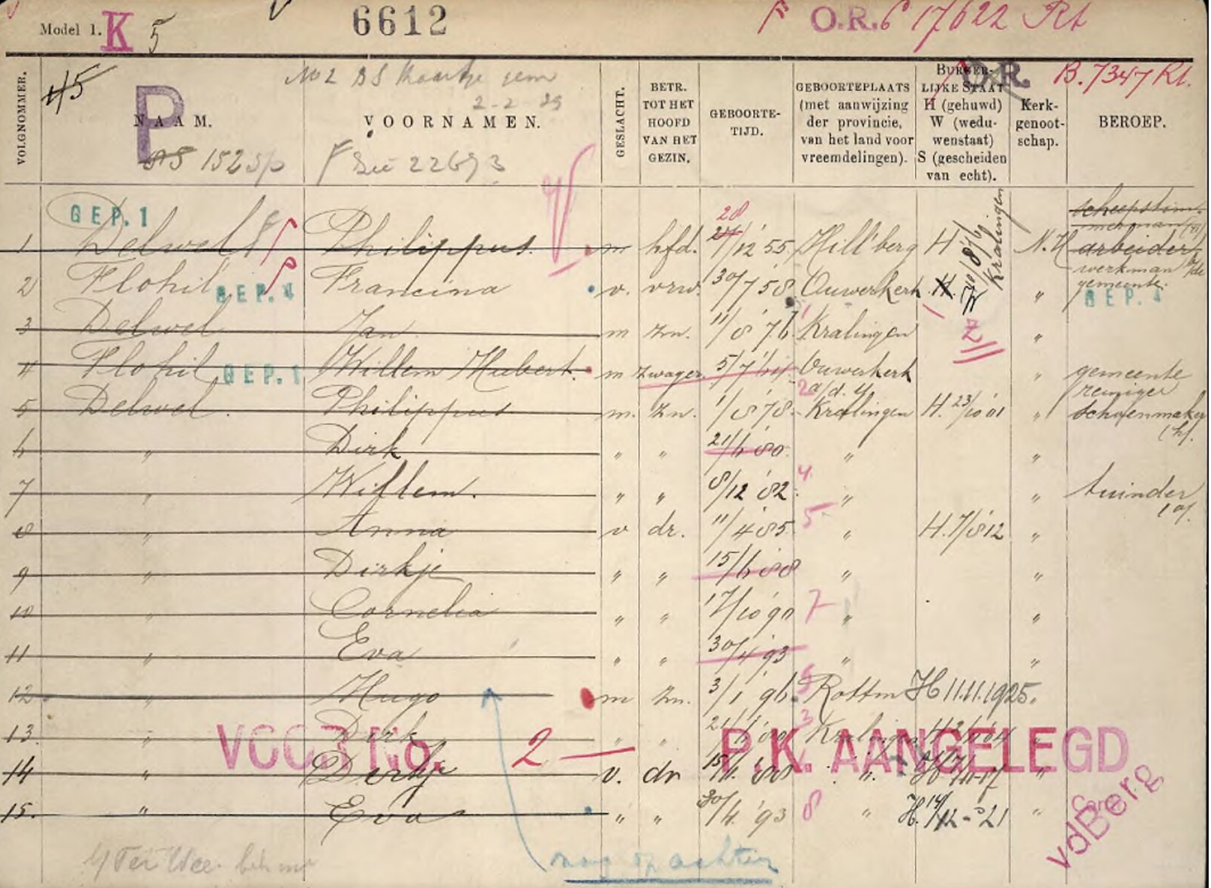 Model 1. K 5 6612 O.R. 6 17622 Rt
O.R. B. 7347 Rt.
VOLGNOMMER.
45
P
NAAM.
VOORNAMEN.
GESLACHT.
BETR. TOT HET HOOFD VAN HET GEZIN.
GEBOORTE-TIJD.
GEBOORTEPLAATS (met aanwijzing der provincie, van het land voor vreemdelingen).
BURGER-LIJKE STAAT H (gehuwd) W (wedu-wenstaat) S (gescheiden van echt).
Kerk-genoot-schap.
BEROEP.
2-2
F 22693
GEP. 1
1 Delwel Philippus m hfd. 28 27/12 55 Hillberg H Kralingen N.H. arbeider
werkman gemeente
2 Flohil GEP. 4 Francina v. vrw. 30/7 58 Ouwerkerk H. " GEP. 4
3 Delwel Jan m zn. 11/8 76 Kralingen "
4 Flohil GEP. 1 Willem Hubert m zwager 5/7 64 Ouwerkerk " gemeente reiniger
5 Delwel Philippus m. zn. 1/8 78 Kralingen H. 23/10 01 " schoenmaker (h).
6 " Dirk " " 21/6 80 " "
7 " Willem. " " 8/12 82 4 " " tuinder
8 " Anna v dr. 11/4 85 5 " H. 7/8 12 "
9 " Dirkje " " 15/6 88 " "
10 " Cornelia " " 17/10 90 7 " "
11 " Eva " " 30/4 93 " "
12 Hugo m zn. 3/1 96 Rottm H 11.11.1925.
13. " Dirk " " 21/6 80 3 Kralingen
VOOR No. 2 — P.K. AANGELEGD
14 " Dirkje v. dr 15/6 88 " "
15. " Eva " " 30/4 '93 8 " H. 14/12-21 "
vdBerg
nog op achter